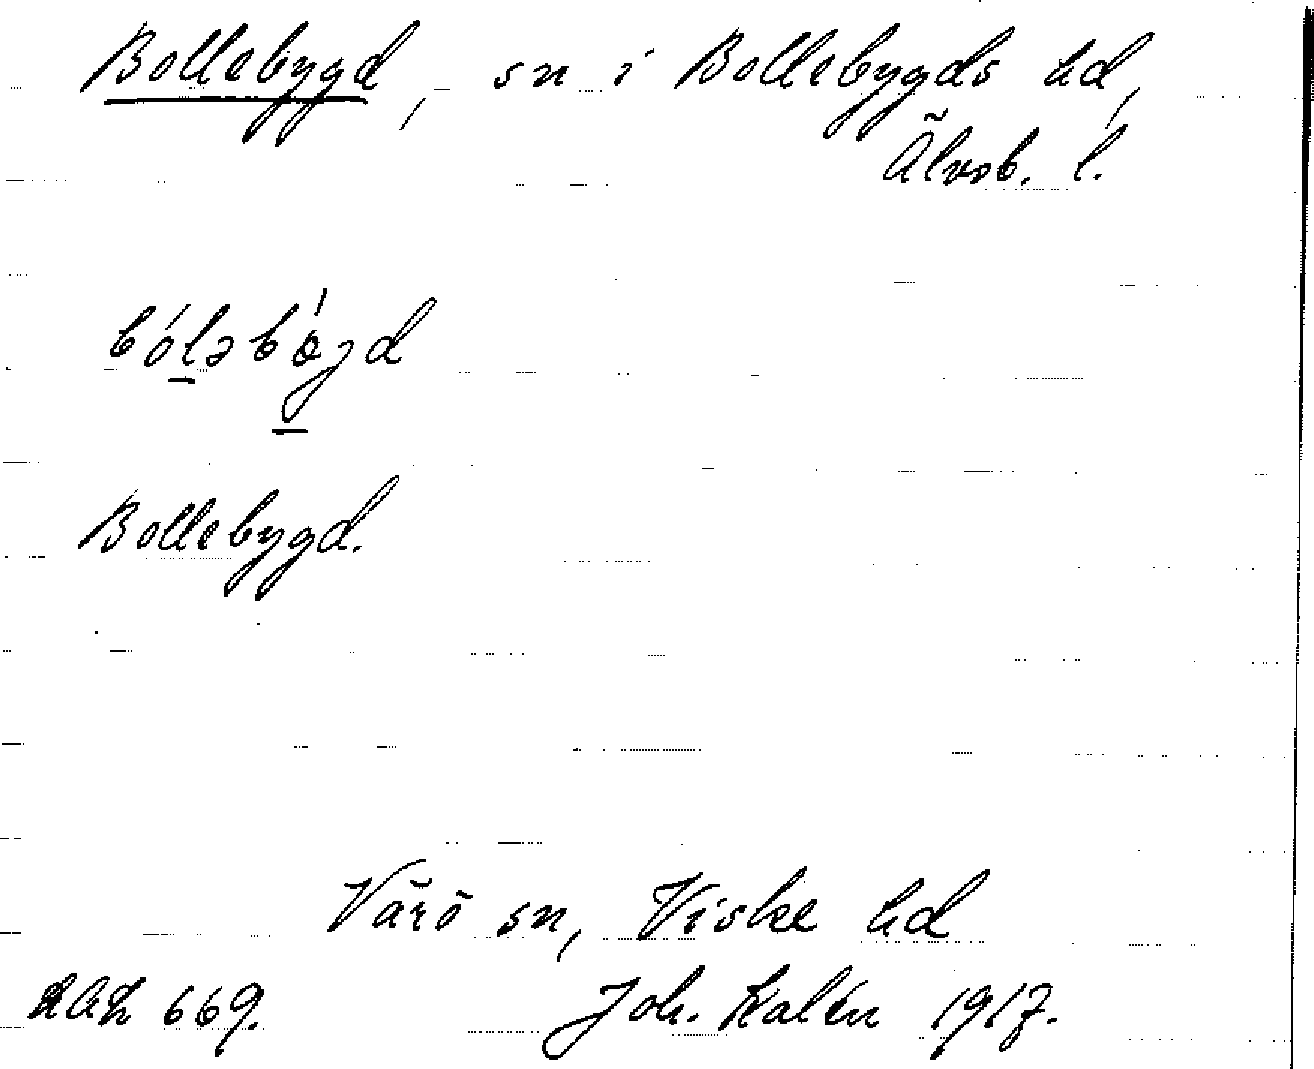 Bollebygd, sn i Bollebygds hd,
Älvsb. l.
bóləbójd
Bollebygd.
Värö sn, Viske hd
669. Joh. Kalén 1917.